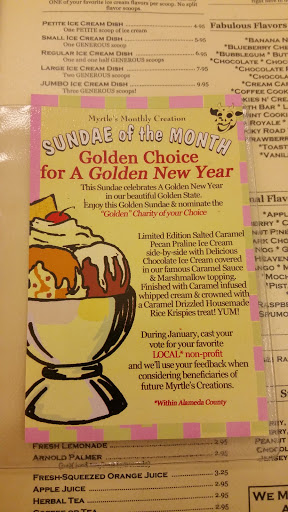 ONE of your favorite ice cream flavors per scoop. No split
flavor scoops.
PETITE ICE CREAM DISH 4.95
One PETITE scoop of ice cream
SMALL ICE CREAM DISH 5.95
One GENEROUS scoop
REGULAR ICE CREAM DISH 6.95
One and one half GENEROUS scoops
LARGE ICE CREAM DISH 7.95
Two GENEROUS scoops
JUMBO ICE CREAM DISH
Three GENEROUS scoops!
Fabulous Flavors
*BANANA N
*BLUEBERRY CHE
*BUBBLEGUM * BUT
*CHOCOLATE * CHOC
*CHOCOLATE
CREAM
*COFFEE COOK
Myrtle's Monthly Creation
SUNDAE of the MONTH
Golden Choice
for A Golden New Year
This Sundae celebrates A Golden New Year
in our beautiful Golden State.
Enjoy this Golden Sundae & nominate the
"Golden" Charity of your Choice
Limited Edition Salted Caramel
Pecan Praline Ice Cream
side-by-side with Delicious
Chocolate Ice Cream covered
in our famous Caramel Sauce
& Marshmallow topping.
Finished with Caramel infused
whipped cream & crowned with
a Caramel Drizzled Housemade
Rice Krispies treat! YUM!
During January, cast your
vote for your favorite
LOCAL* non-profit
and we'll use your feedback when
considering beneficiaries of
future Myrtle's Creations.
*Within Alameda County
FRESH LEMONADE 2.95
ARNOLD PALMER 2.95
FRESH-SQUEEZED ORANGE JUICE 3.25
APPLE JUICE 2.95
HERBAL TEA 2.95
COFFEE OR TEA
WE M